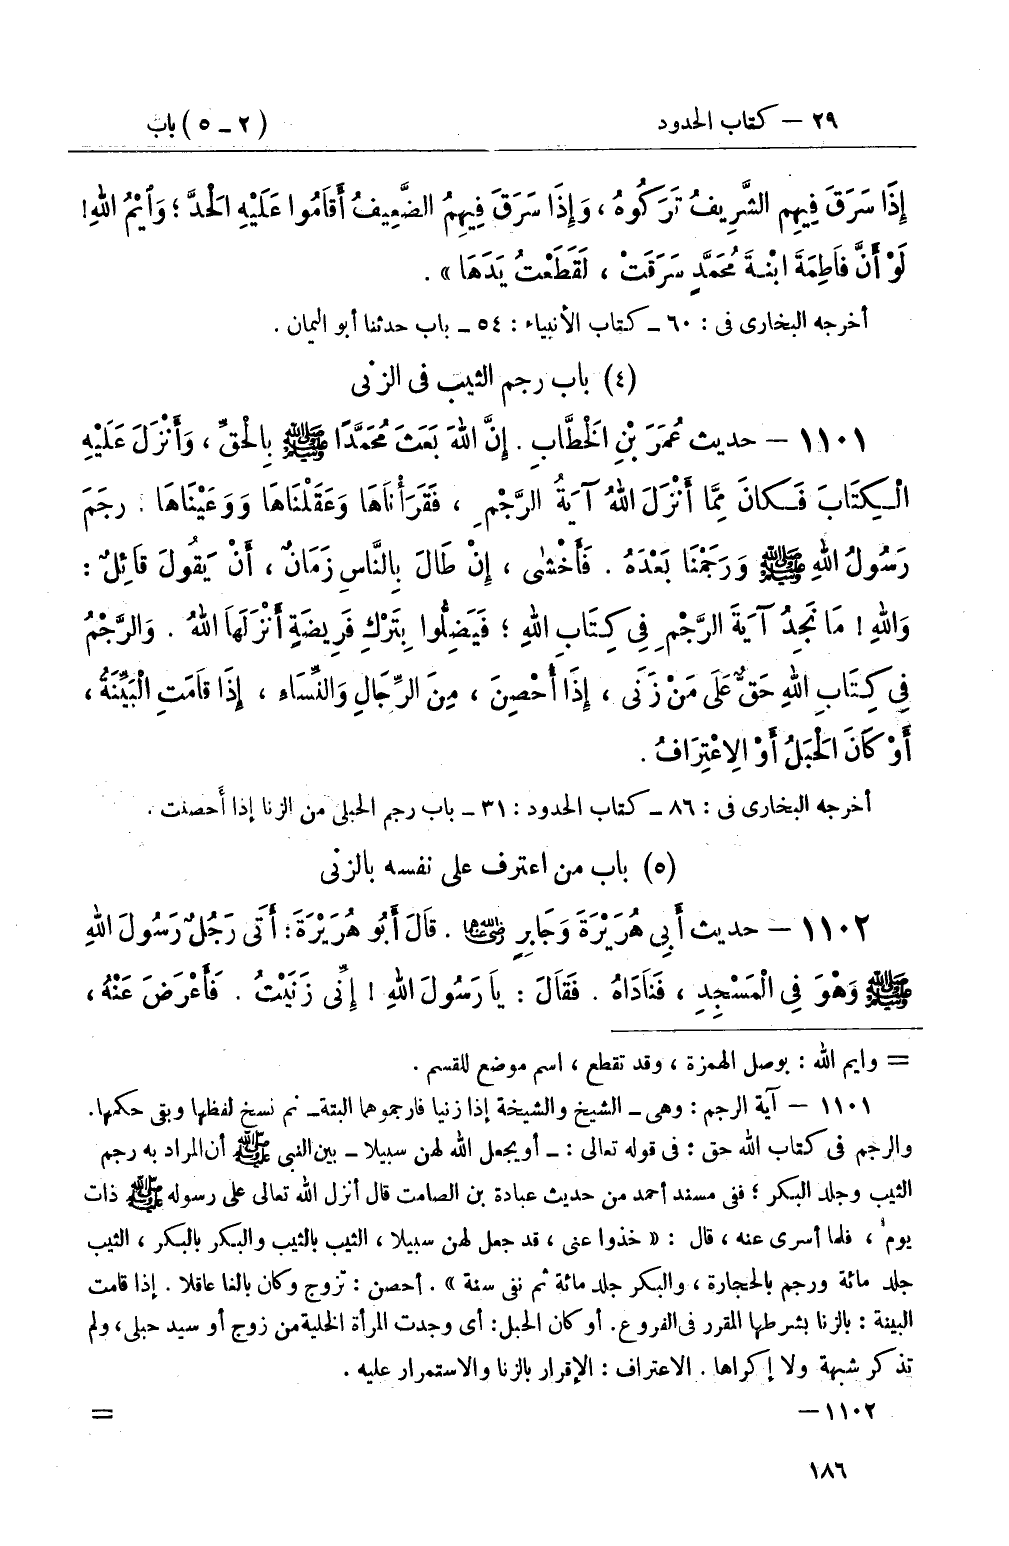 ٢٩ — كتاب الحدود (٢ ـ ٥) باب
إِذَا سَرَقَ فِيهِمِ الشَّرِيفُ تَرَكُوهُ، وَإِذَا سَرَقَ فِيهِمُ الضَّعِيفُ أَقَامُوا عَلَيْهِ الْحَدَّ؛ وَٱيْمُ اللهِ!
لَوْ أَنَّ فَاطِمَةَ ابْنَةَ مُحَمَّدٍ سَرَقَتْ، لَقَطَعْتُ يَدَهَا».
أخرجه البخارى فى: ٦٠ ـ كتاب الأنبياء: ٥٤ ـ باب حدثنا أبو اليمان.
(٤) باب رجم الثيب فى الزنى
١١٠١ — حديث عُمَرَ بْنِ الْخَطَّابِ. إِنَّ اللهَ بَعَثَ مُحَمَّدًا ﷺ بِالْحَقِّ، وَأَنْزَلَ عَلَيْهِ
الْكِتَابَ فَكَانَ مِمَّا أَنْزَلَ اللهُ آيَةُ الرَّجْمِ، فَقَرَأْنَاهَا وَعَقَلْنَاهَا وَوَعَيْنَاهَا. رجَمَ
رَسُولُ اللهِ ﷺ وَرَجَمْنَا بَعْدَهُ. فَأَخْشَى، إِنْ طَالَ بِالنَّاسِ زَمَانٌ، أَنْ يَقُولَ قَائِلٌ:
وَاللهِ! مَا نَجِدُ آيَةَ الرَّجْمِ فِي كِتَابِ اللهِ؛ فَيَضِلُّوا بِتَرْكِ فَرِيضَةٍ أَنْزَلَهَا اللهُ. وَالرَّجْمُ
فِي كِتَابِ اللهِ حَقٌّ عَلَى مَنْ زَنَى، إِذَا أُحْصِنَ، مِنَ الرِّجَالِ وَالنِّسَاءِ، إِذَا قَامَتِ الْبَيِّنَةُ،
أَوْ كَانَ الْحَبَلُ أَوْ الِاعْتِرَافُ.
أخرجه البخارى فى: ٨٦ ـ كتاب الحدود: ٣١ ـ باب رجم الحبلى من الزنا إذا أحصنت.
(٥) باب من اعترف على نفسه بالزنى
١١٠٢ — حديث أَبِي هُرَيْرَةَ وَجَابِرٍ رضي الله عنهما. قَالَ أَبُو هُرَيْرَةَ: أَتَى رَجُلٌ رَسُولَ اللهِ
ﷺ وَهْوَ فِي الْمَسْجِدِ، فَنَادَاهُ. فَقَالَ: يَا رَسُولَ اللهِ! إِنِّي زَنَيْتُ. فَأَعْرَضَ عَنْهُ،
= وايم الله: بوصل الهمزة، وقد تقطع، اسم موضع للقسم.
١١٠١ — آية الرجم: وهى ـ الشيخ والشيخة إذا زنيا فارجموهما البتة ـ ثم نسخ لفظها وبقى حكمها.
والرجم فى كتاب الله حق: فى قوله تعالى: ـ أو يجعل الله لهن سبيلا ـ بين النبى ﷺ أن المراد به رجم
الثيب وجلد البكر؛ ففى مسند أحمد من حديث عبادة بن الصامت قال أنزل الله تعالى على رسوله ﷺ ذات
يوم، فلما أسرى عنه، قال: «خذوا عنى، قد جعل لهن سبيلا، الثيب بالثيب والبكر بالبكر، الثيب
جلد مائة ورجم بالحجارة، والبكر جلد مائة ثم نفى سنة». أحصن: تزوج وكان بالغا عاقلا. إذا قامت
البينة: بالزنا بشرطها المقرر فى الفروع. أو كان الحبل: أى وجدت المرأة الخلية من زوج أو سيد حبلى، ولم
تذكر شبهة ولا إكراها. الاعتراف: الإقرار بالزنا والاستمرار عليه.
١١٠٢ — =
١٨٦